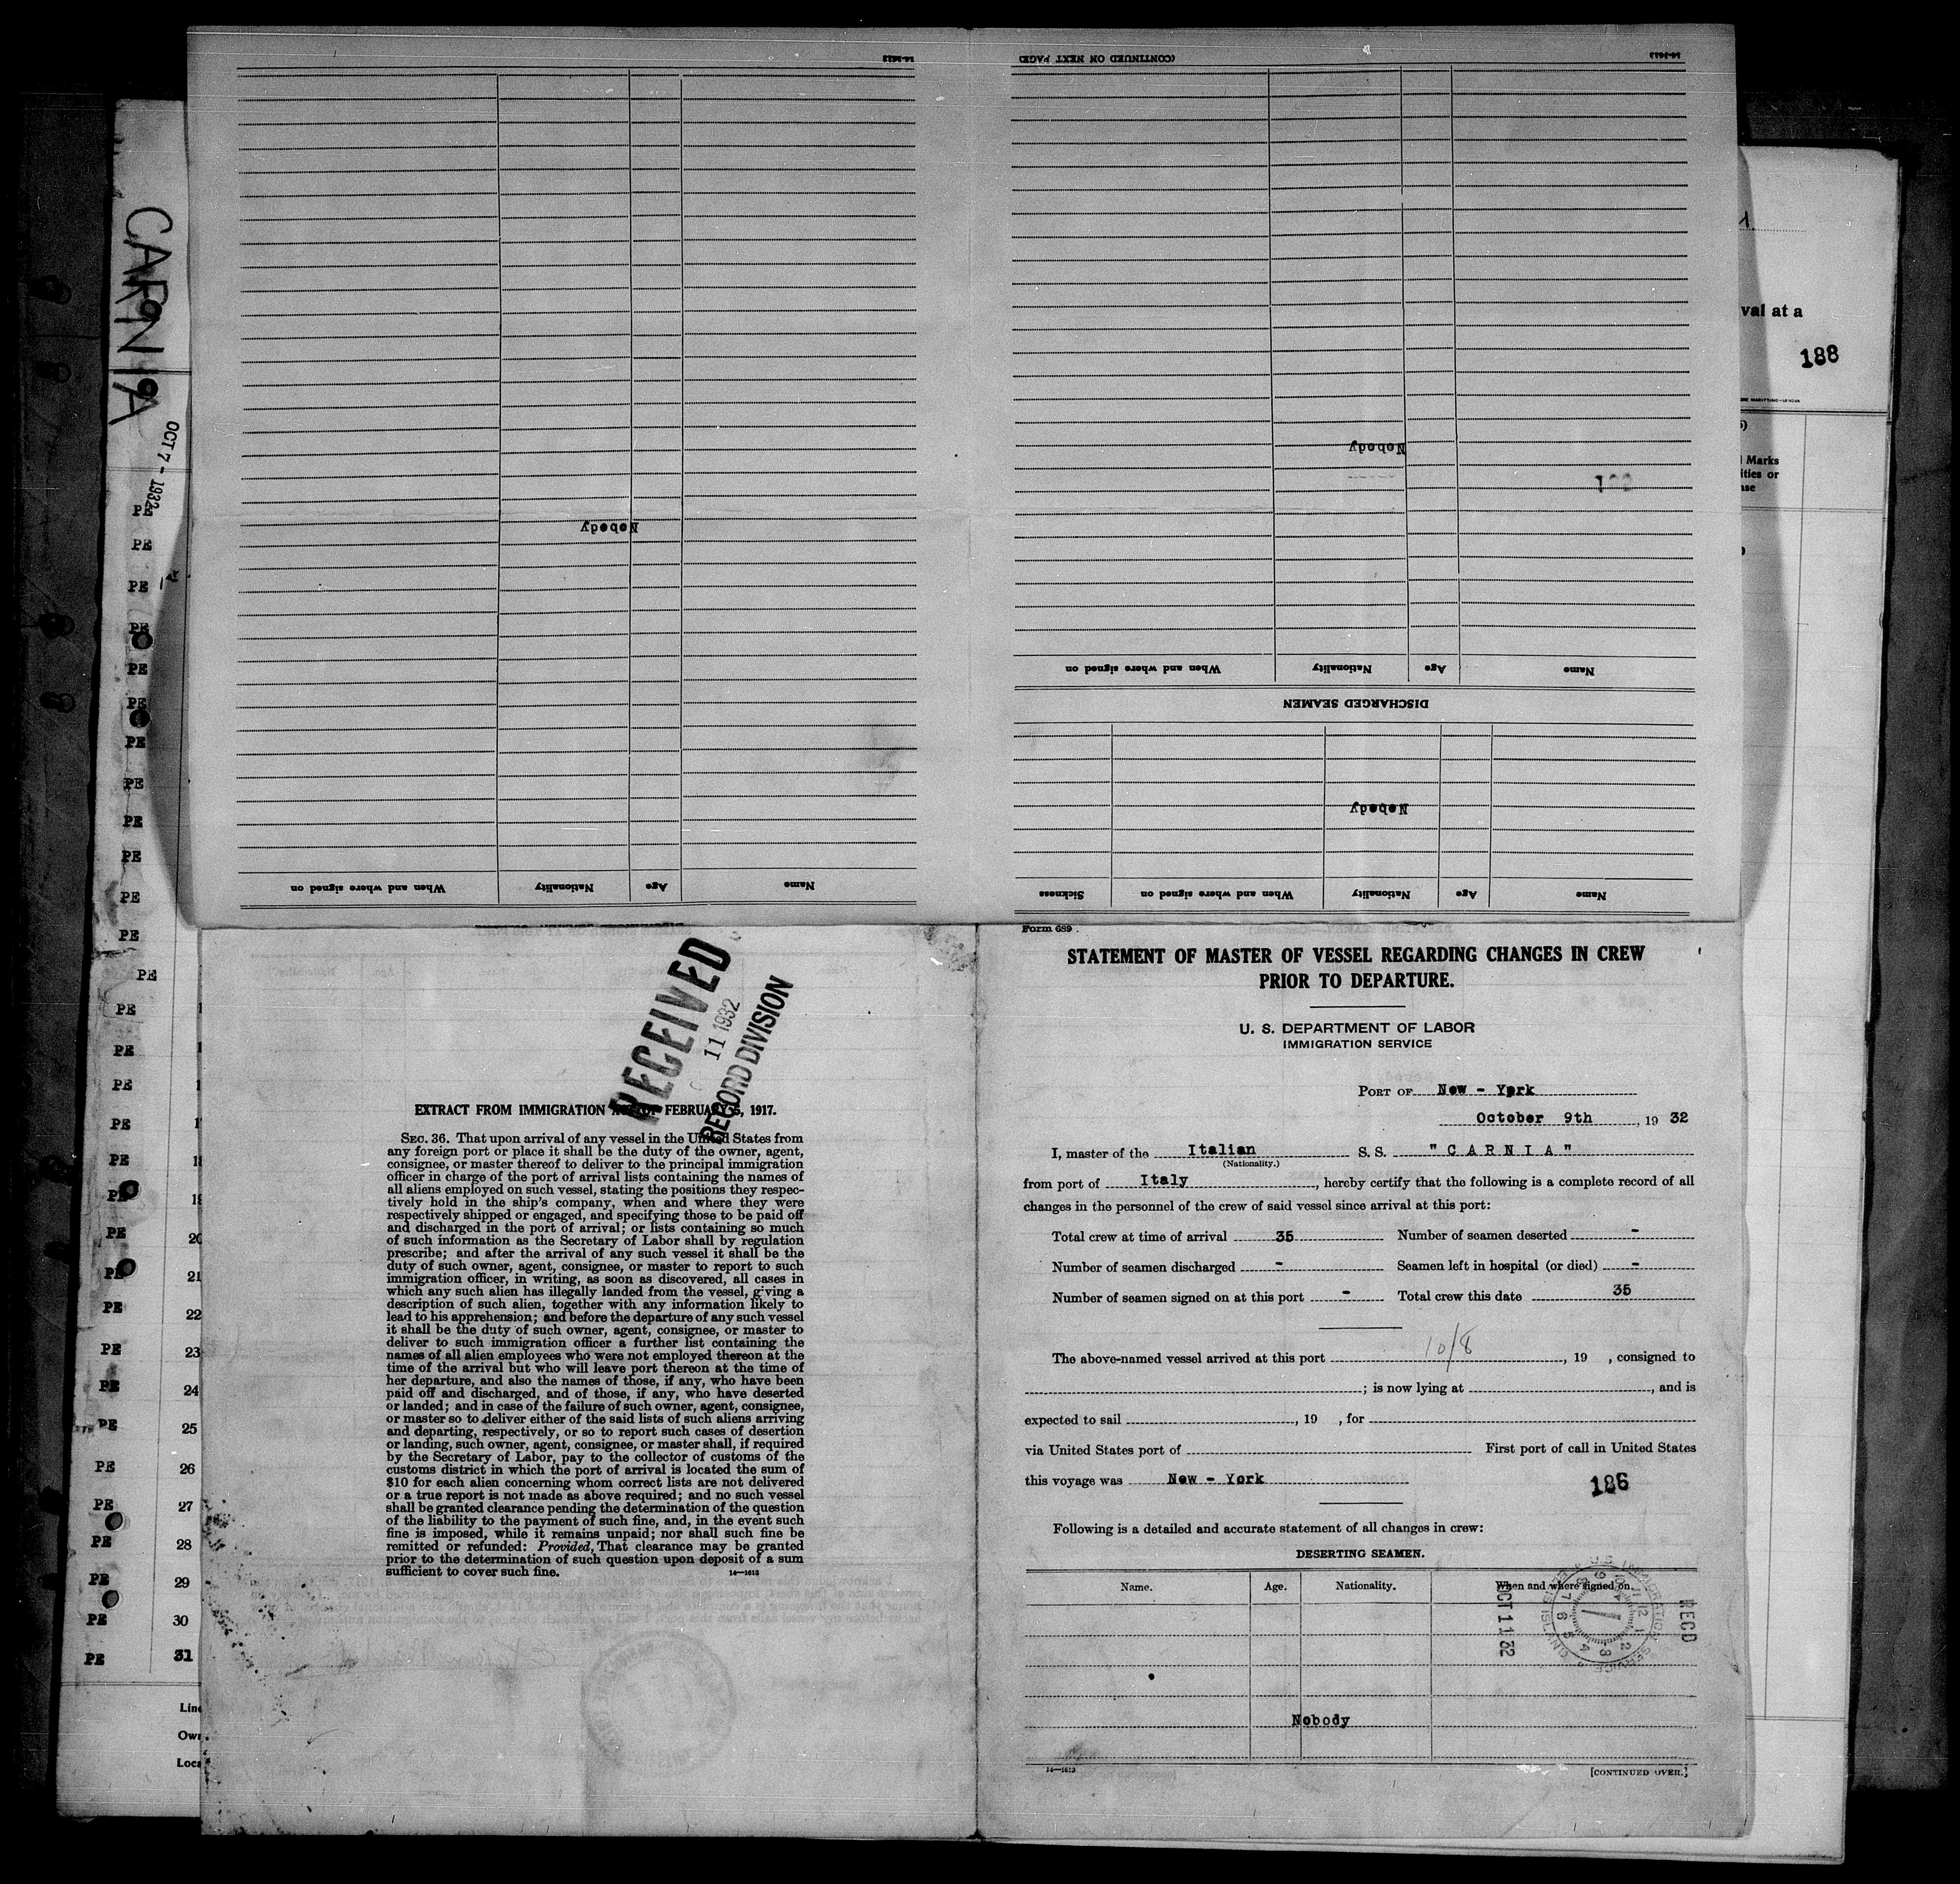 14-1613
(CONTINUED ON NEXT PAGE)
14-1613
Nobody
Nobody
When and where signed on
Nationality
Age
Name
DISCHARGED SEAMEN
Nobody
When and where signed on
Nationality
Age
Name
Sickness
When and where signed on
Nationality
Age
Name
CARNIA
OCT 7 - 1932
PE
PE
PE
PE
PE
PE
PE
PE
PE
PE
PE
PE
PE
PE
PE
PE
PE
PE
PE
PE
PE 20
PE 21
PE 22
PE 23
PE 24
PE 25
PE 26
PE 27
PE 28
PE 29
PE 30
PE 31
val at a
188
Marks
ities or
RECEIVED
11 1932
RECORD DIVISION
EXTRACT FROM IMMIGRATION ACT OF FEBRUARY 5, 1917.
SEC. 36. That upon arrival of any vessel in the United States from
any foreign port or place it shall be the duty of the owner, agent,
consignee, or master thereof to deliver to the principal immigration
officer in charge of the port of arrival lists containing the names of
all aliens employed on such vessel, stating the positions they respec-
tively hold in the ship's company, when and where they were
respectively shipped or engaged, and specifying those to be paid off
and discharged in the port of arrival; or lists containing so much
of such information as the Secretary of Labor shall by regulation
prescribe; and after the arrival of any such vessel it shall be the
duty of such owner, agent, consignee, or master to report to such
immigration officer, in writing, as soon as discovered, all cases in
which any such alien has illegally landed from the vessel, giving a
description of such alien, together with any information likely to
lead to his apprehension; and before the departure of any such vessel
it shall be the duty of such owner, agent, consignee, or master to
deliver to such immigration officer a further list containing the
names of all alien employees who were not employed thereon at the
time of the arrival but who will leave port thereon at the time of
her departure, and also the names of those, if any, who have been
paid off and discharged, and of those, if any, who have deserted
or landed; and in case of the failure of such owner, agent, consignee,
or master so to deliver either of the said lists of such aliens arriving
and departing, respectively, or so to report such cases of desertion
or landing, such owner, agent, consignee, or master shall, if required
by the Secretary of Labor, pay to the collector of customs of the
customs district in which the port of arrival is located the sum of
$10 for each alien concerning whom correct lists are not delivered
or a true report is not made as above required; and no such vessel
shall be granted clearance pending the determination of the question
of the liability to the payment of such fine, and, in the event such
fine is imposed, while it remains unpaid; nor shall such fine be
remitted or refunded: Provided, That clearance may be granted
prior to the determination of such question upon deposit of a sum
sufficient to cover such fine.
14—1613
Form 689
STATEMENT OF MASTER OF VESSEL REGARDING CHANGES IN CREW
PRIOR TO DEPARTURE.
U. S. DEPARTMENT OF LABOR
IMMIGRATION SERVICE
PORT OF New - York
October 9th, 19 32
I, master of the Italian S. S. "C A R N I A"
(Nationality.)
from port of Italy, hereby certify that the following is a complete record of all
changes in the personnel of the crew of said vessel since arrival at this port:
Total crew at time of arrival 35 Number of seamen deserted -
Number of seamen discharged - Seamen left in hospital (or died) -
Number of seamen signed on at this port - Total crew this date 35
The above-named vessel arrived at this port 10/8, 19 , consigned to
; is now lying at , and is
expected to sail , 19 , for
via United States port of First port of call in United States
this voyage was New - York
186
Following is a detailed and accurate statement of all changes in crew:
DESERTING SEAMEN.
Name. Age. Nationality. When and where signed on.
OCT 11 32
RECD
Nobody
14—1613
[CONTINUED OVER.]